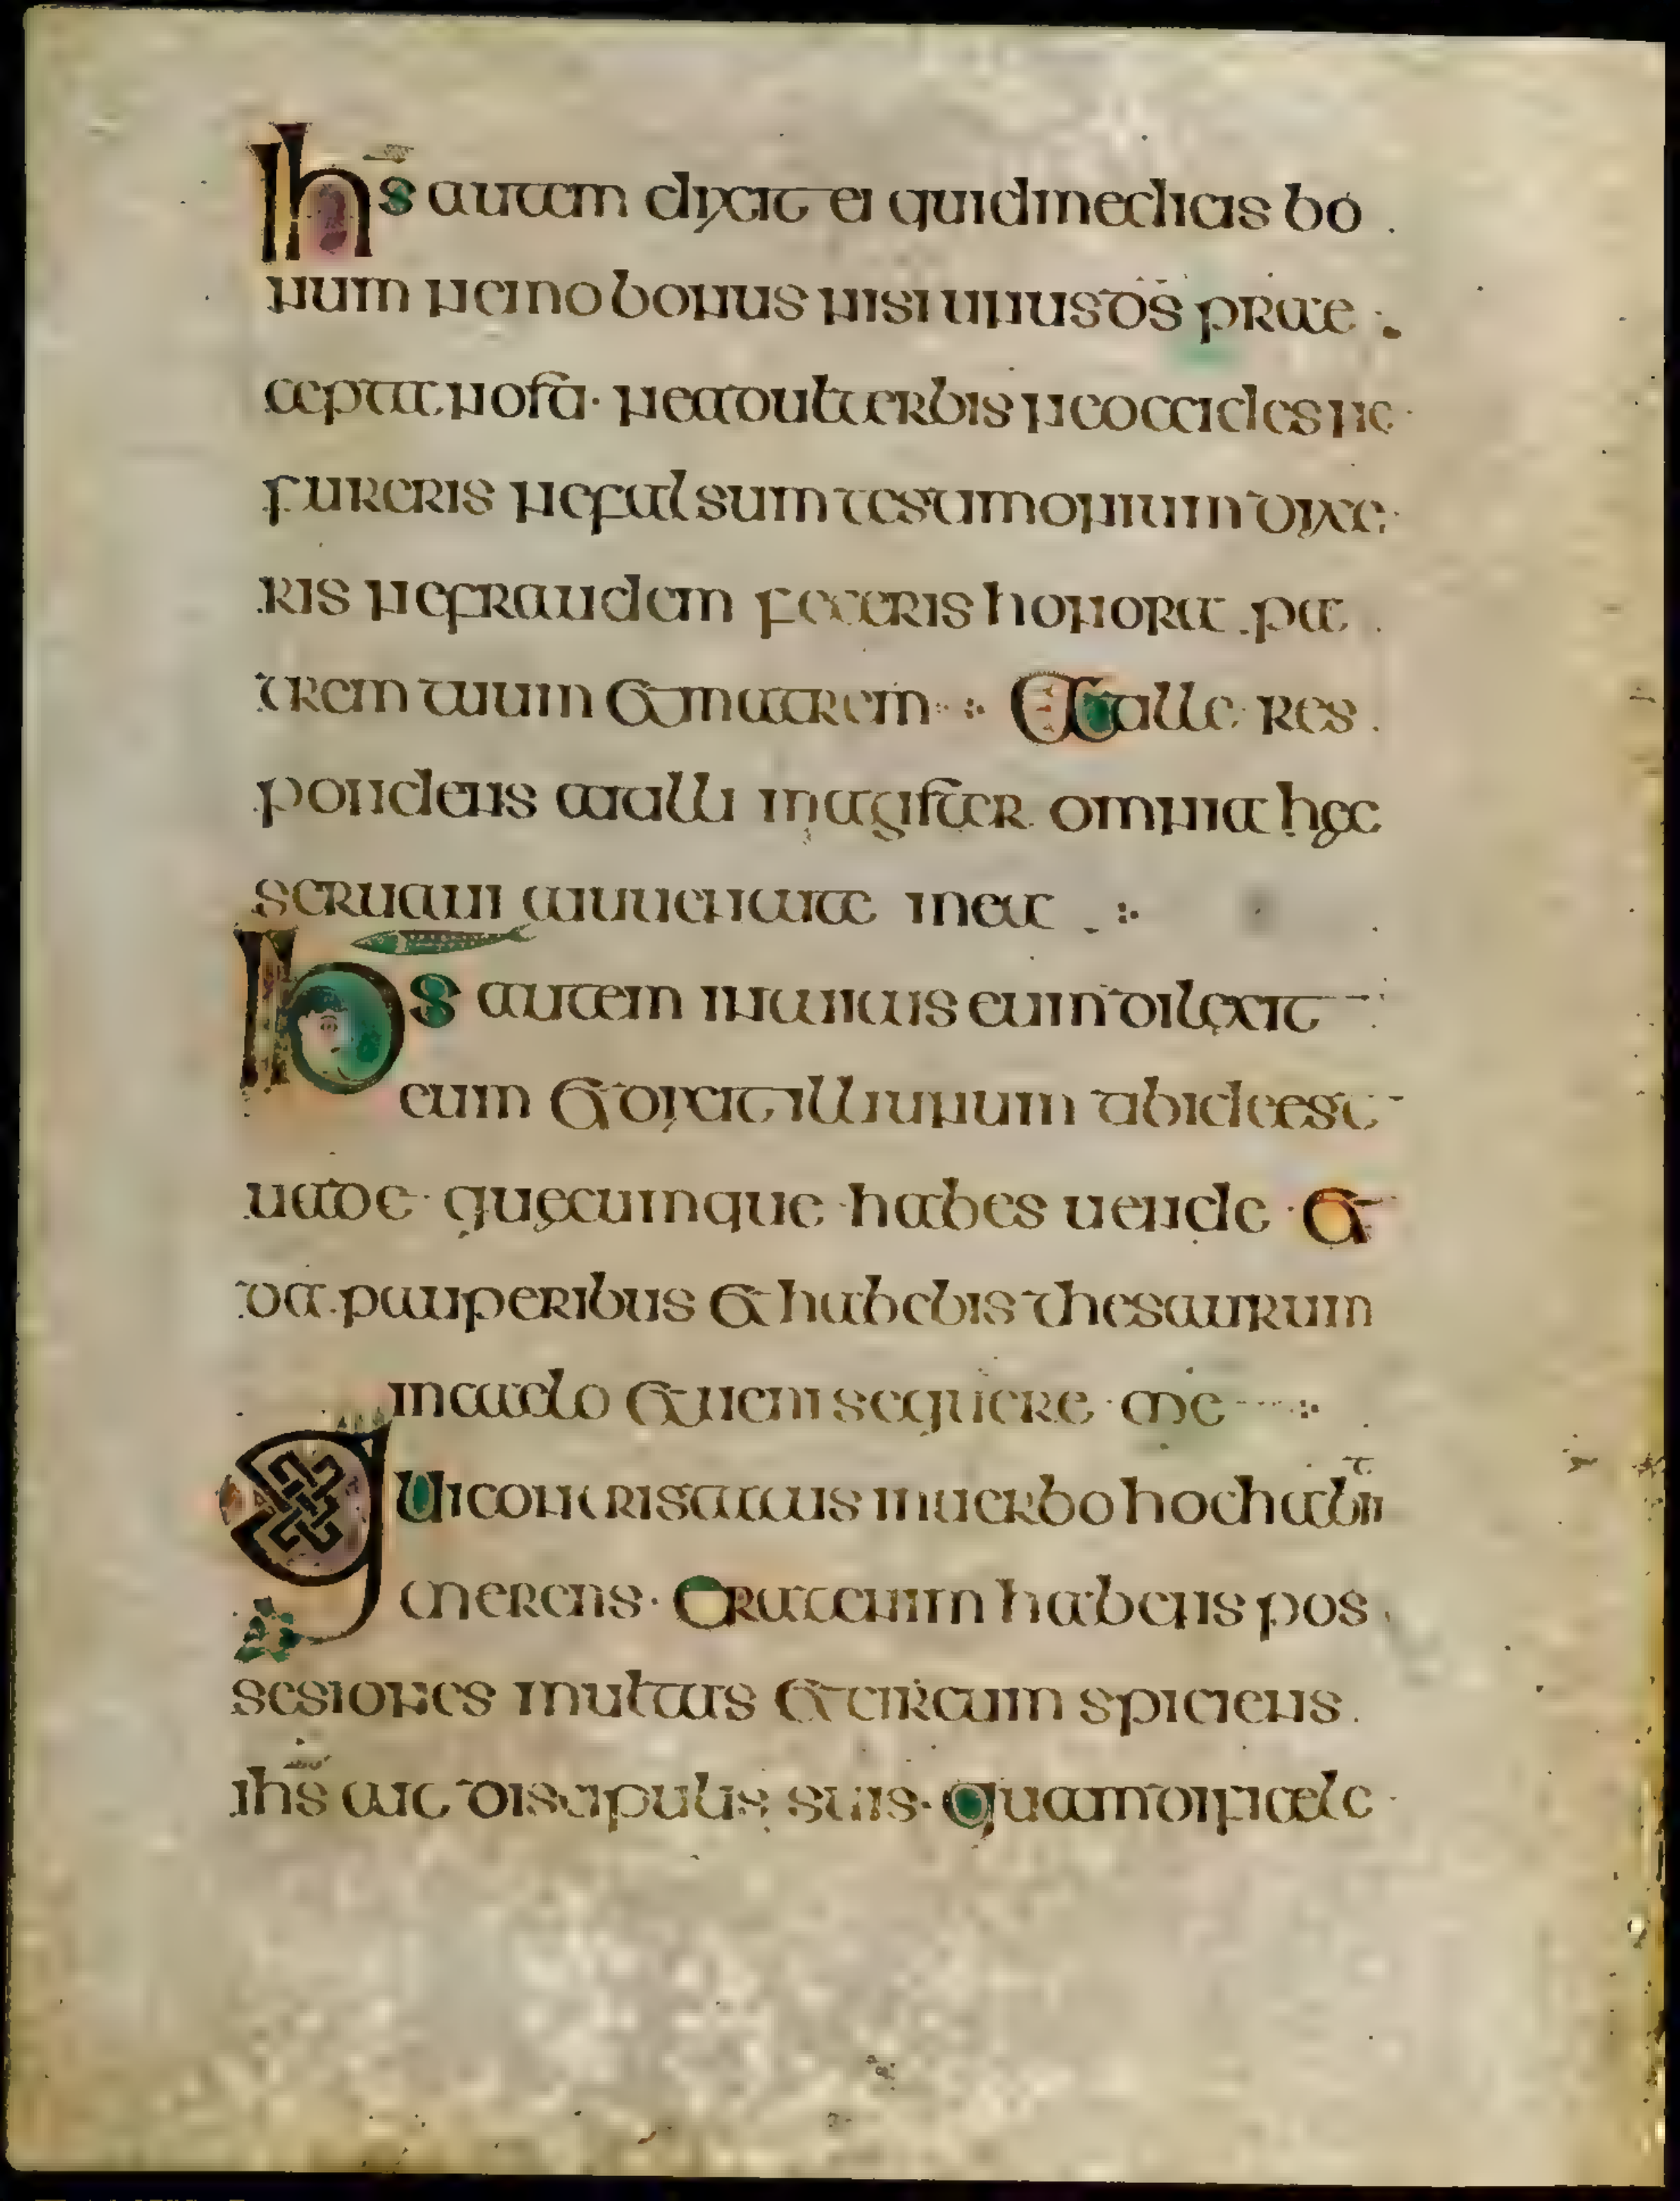 ihs autem dixit ei quid me dicis bo
num nemo bonus nisi unus ds prae
cepta nosti · ne adulterbis ne occides ne
fureris ne falsum testimonium dixe
ris ne fraudem feceris honora pa
trem tuum et matrem Et ille res
pondens ait illi magister omnia hęc
servavi a iuventute mea
ihs autem intuitus eum dilexit
eum et dixit illi unum tibi deest
vade quęcumque habes vende et
da pauperibus et habebis thesaurum
in caelo et veni sequere me
Qui contristatus in verbo hoc habiit
merens · Erat enim habens pos
sesiones multas et circum spiciens
ihs ait discipulis suis · quam difficele